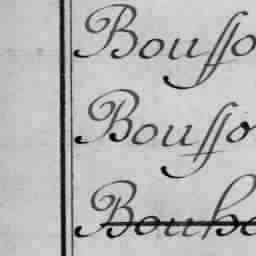 Bousso
Bousso
Bouho